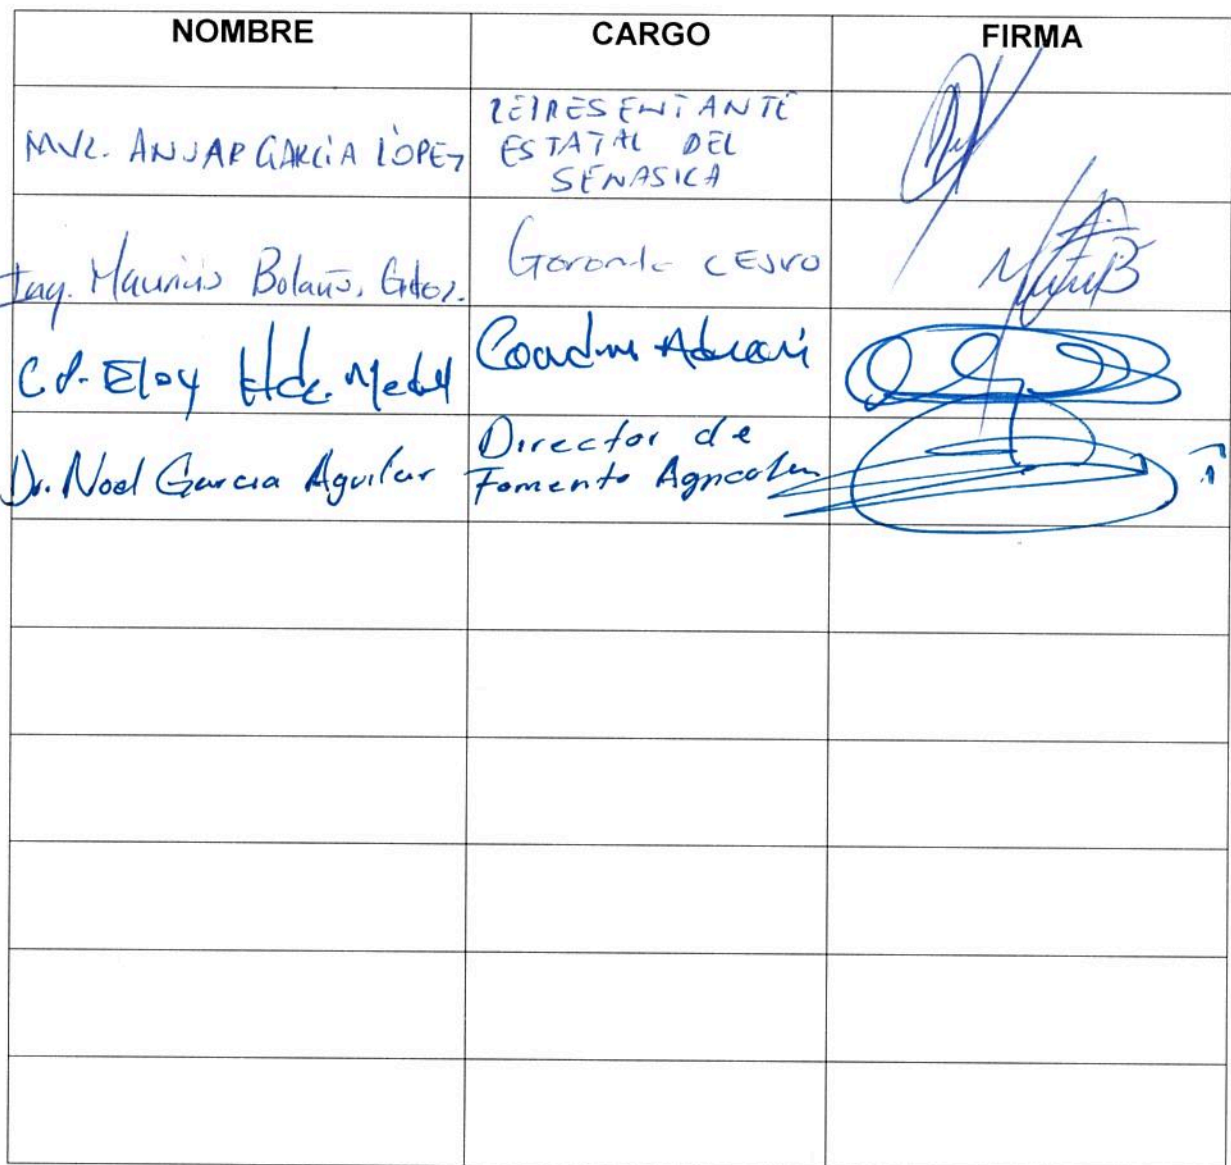 NOMBRE CARGO FIRMA
MVZ. ANUAR GARCÍA LÓPEZ
REPRESENTANTE
ESTATAL DEL
SENASICA
Ing. Mauricio Bolaños
Gerente CESVO
C.P. Eloy Hdez. Medel
Dr. Noel Garcia Aguilar
Director de
Fomento Agricola